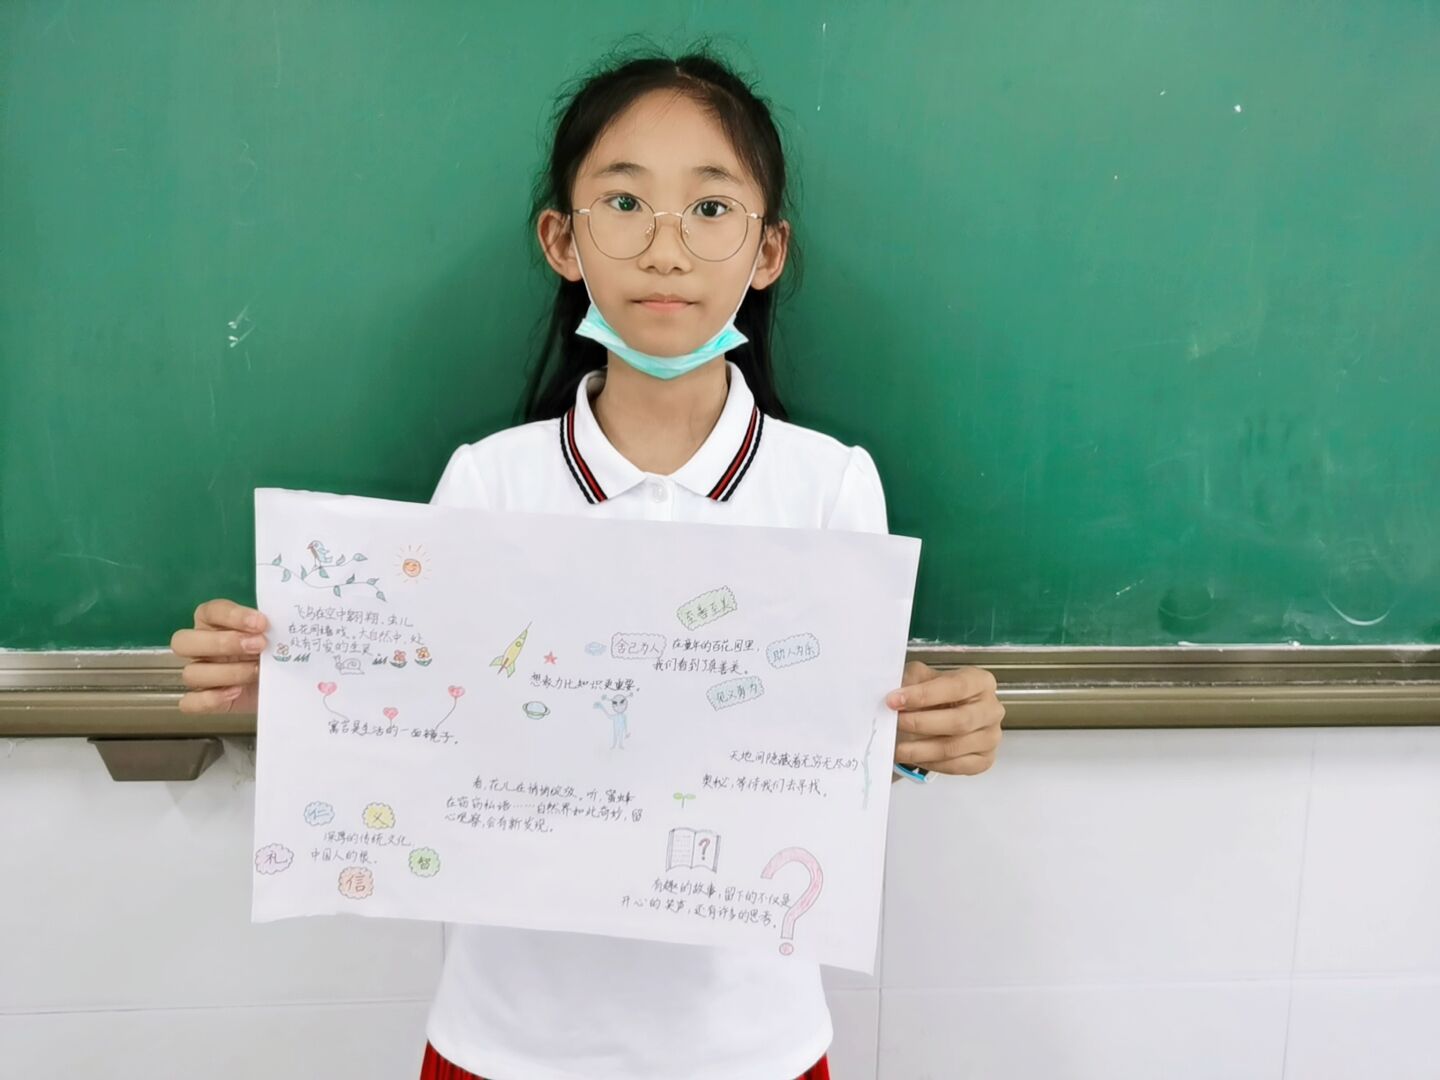 飞鸟在空中翱翔，虫儿
在花间嬉戏。大自然中，处
处有可爱的生灵。
寓言是生活的一面镜子。
想象力比知识更重要。
至善至美
舍己为人
在童年的百花园里，
我们看到了真善美。
助人为乐
见义勇为
天地间隐藏着无穷无尽的
奥秘，等待我们去寻找。
看，花儿在悄悄绽放。听，蜜蜂
在窃窃私语……自然界如此奇妙，留
心观察，会有新发现。
仁
义
深厚的传统文化，
中国人的根。
礼
智
信
?
有趣的故事，留下的不仅是
开心的笑声，还有许多的思考。
?